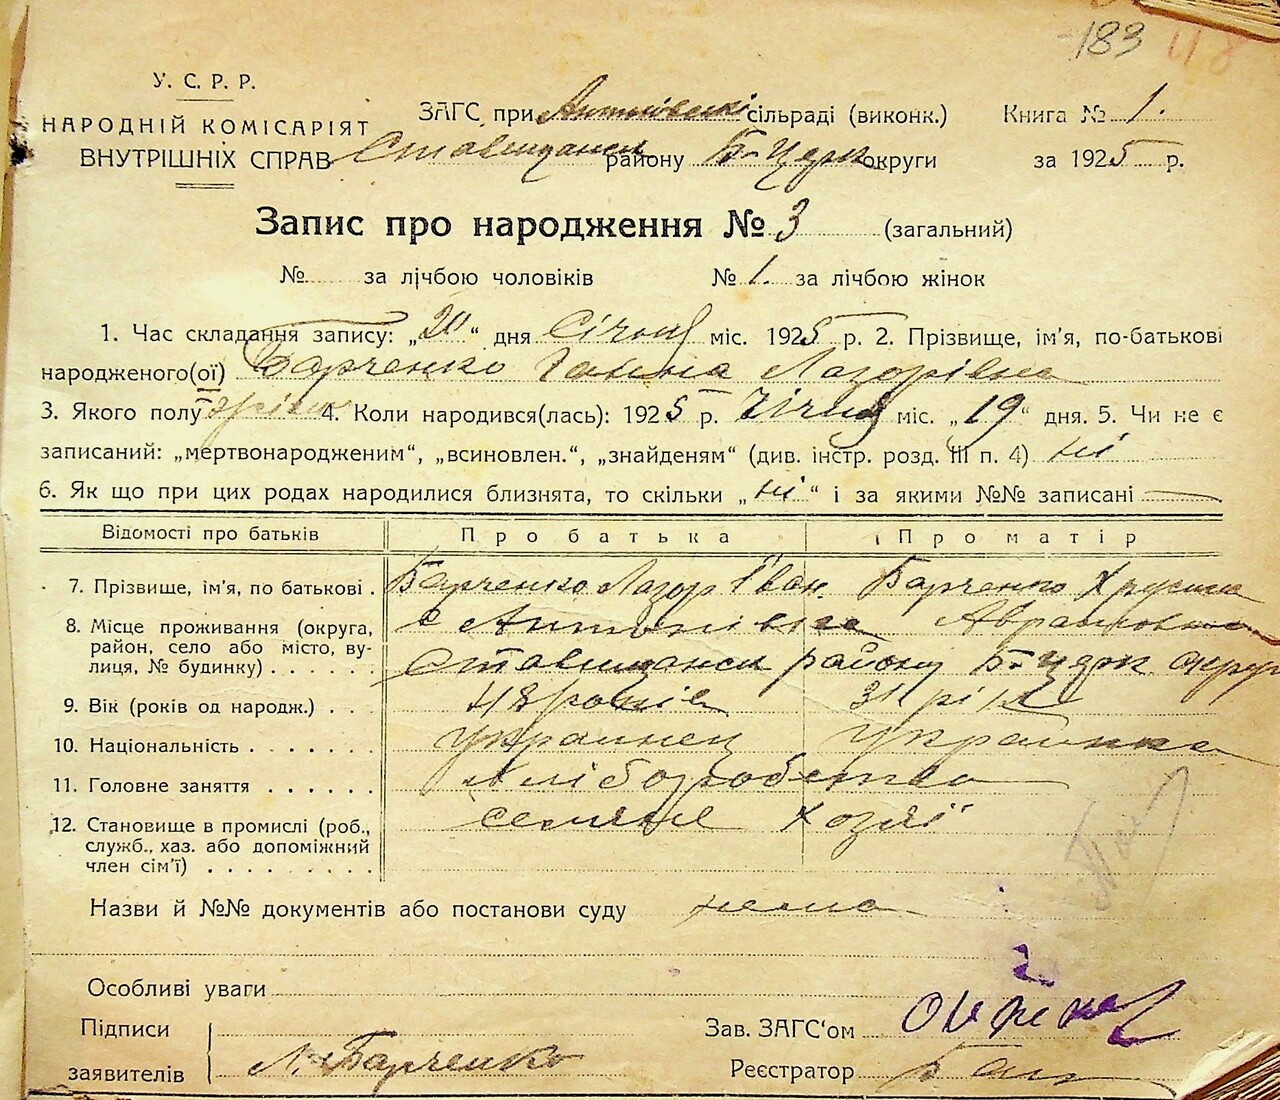 183 48
У. С. Р. Р.
НАРОДНІЙ КОМІСАРІЯТ
ВНУТРІШНІХ СПРАВ
ЗАГС при Антонівські сільраді (виконк.) Книга № 1.
Ставищанськ району Б-Церк округи за 1925 р.
Запис про народження № 3 (загальний)
№ за лічбою чоловіків № 1. за лічбою жінок
1. Час складання запису: „20“ дня Січня міс. 1925 р. 2. Прізвище, ім'я, по-батькові
народженого(ої) Барченко Ганна Лазорівна
3. Якого полу жіноч 4. Коли народився(лась): 1925 р. Січня міс. „19“ дня. 5. Чи не є
записаний: „мертвонародженим“, „всиновлен.“, „знайденям“ (див. інстр. розд. III п. 4) ні
6. Як що при цих родах народилися близнята, то скільки „ні“ і за якими №№ записані —
Відомості про батьків Про батька Про матір
7. Прізвище, ім'я, по батькові . Барченко Лазор Іван. Барченко Хрусина
Аврамовна
8. Місце проживання (округа, с Антонівка
район, село або місто, ву-
лиця, № будинку) . . . . . . Ставищанськ району Б-Церк округ
9. Вік (років од народж.) . . . 48 років 31 рік
10. Національність . . . . . . . украинец украинка
11. Головне заняття . . . . . . хліборобство
12. Становище в промислі (роб.,
служб., хаз. або допоміжний
член сім'ї) . . . . . . . . . . селяне хозяї
Назви й №№ документів або постанови суду нема
Особливі уваги
Підписи
заявителів Л. Барченко
Зав. ЗАГС'ом
Реєстратор